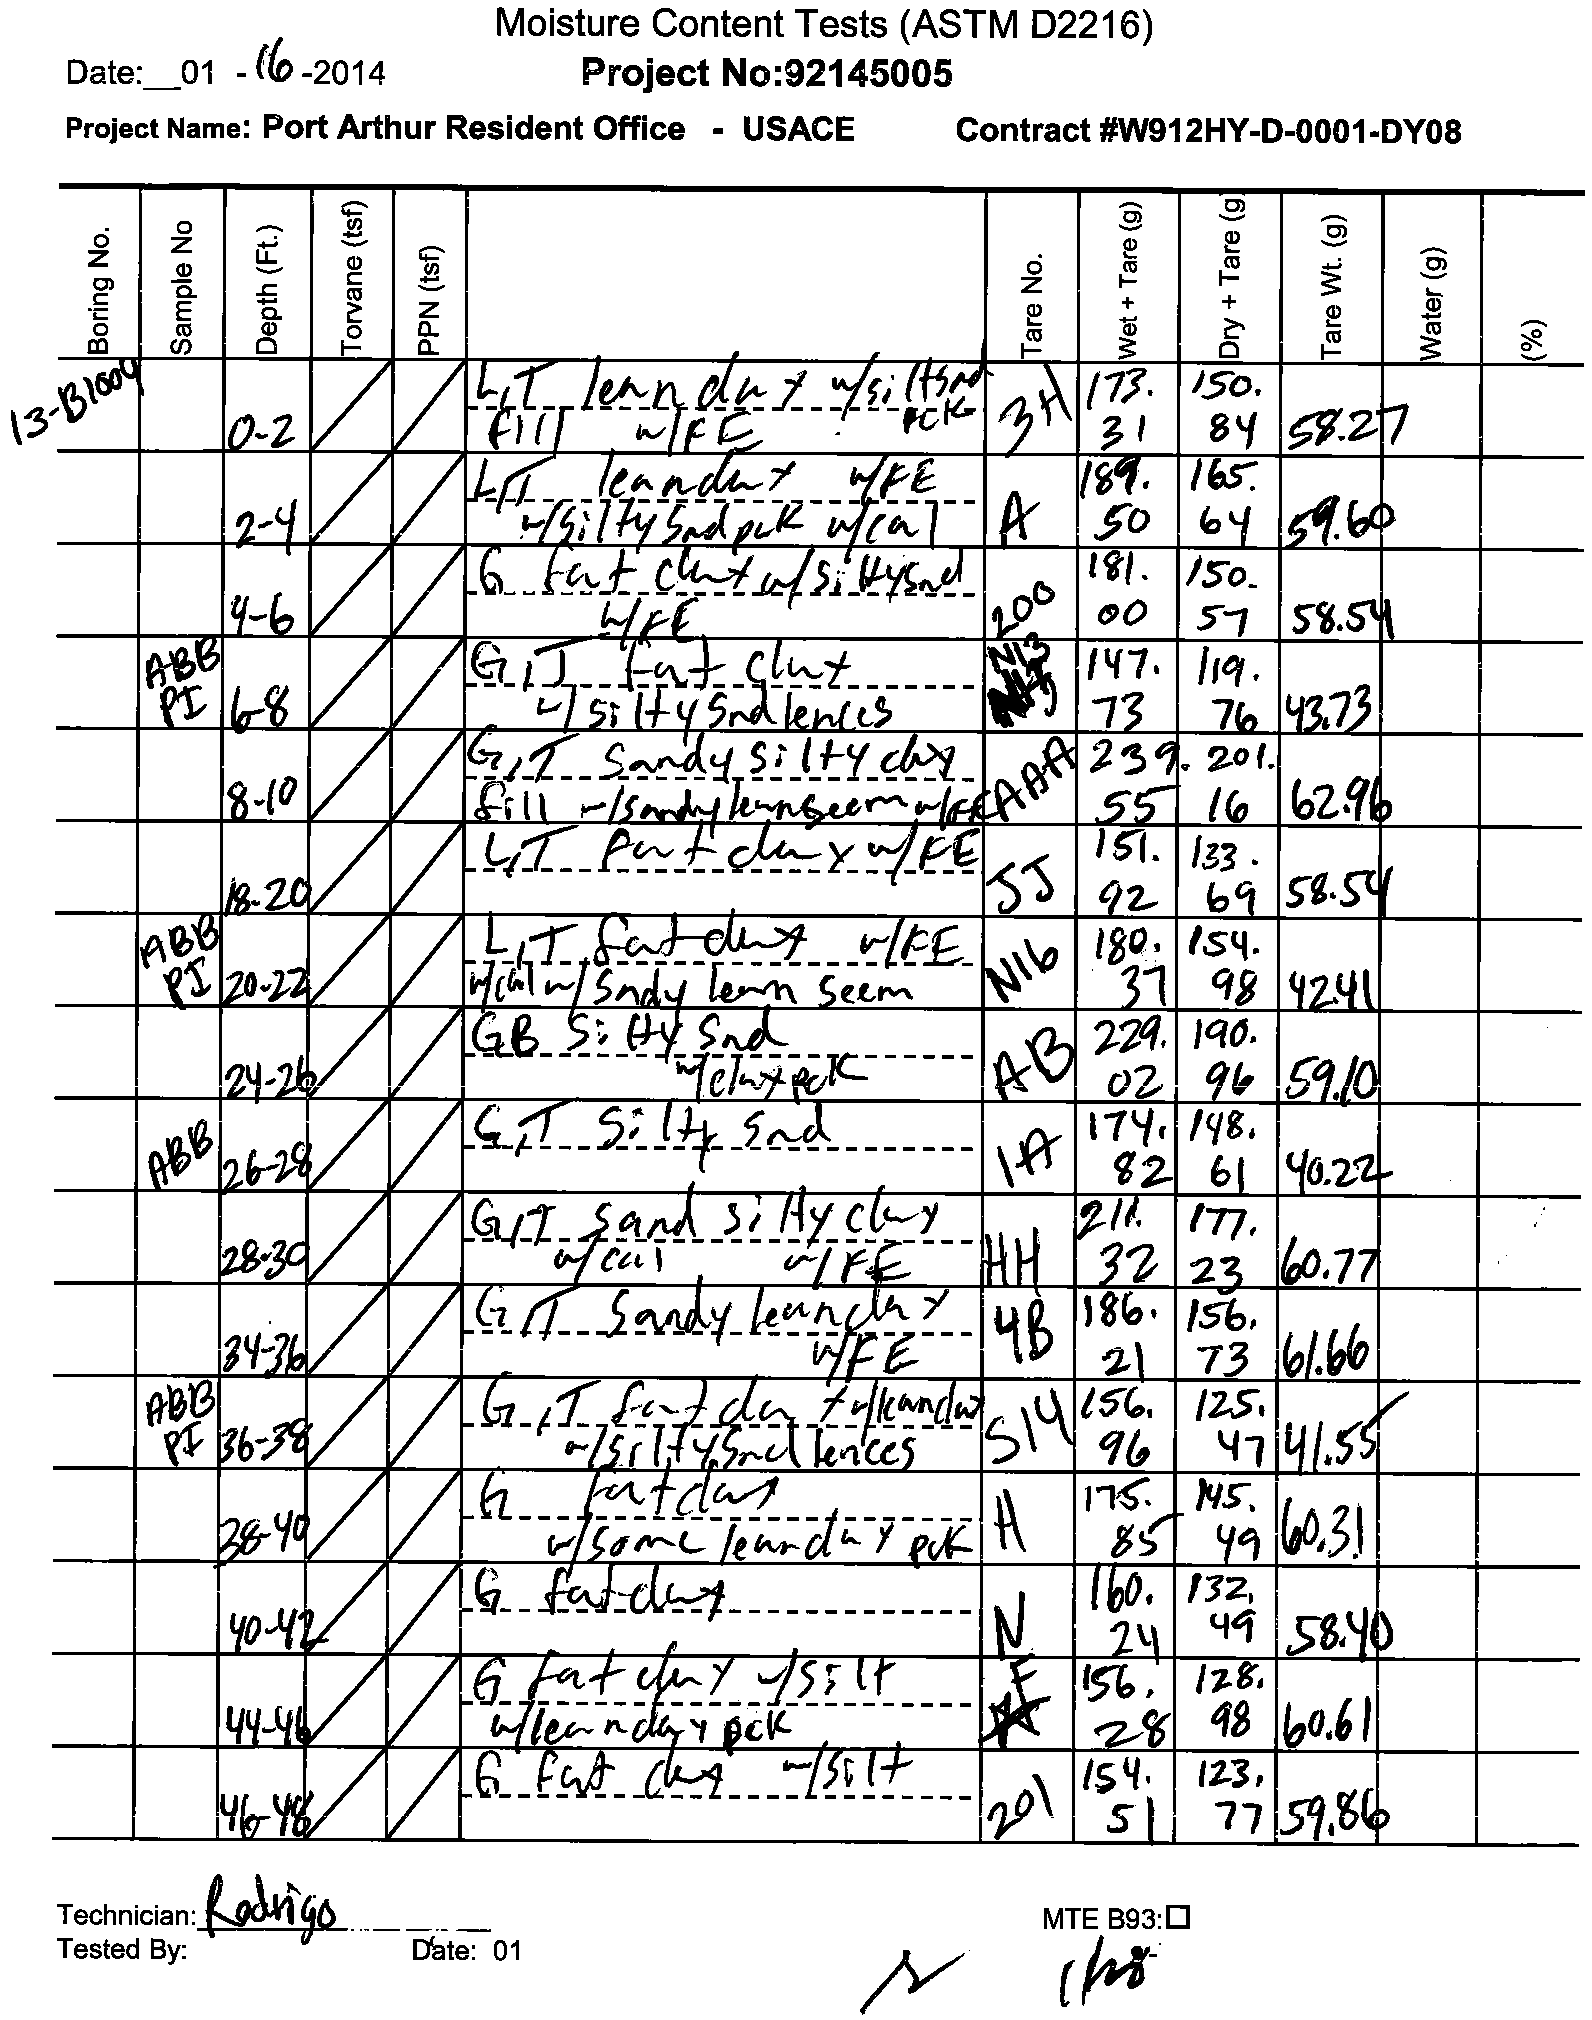 Moisture Content Tests (ASTM D2216)
Date:__01 -16-2014 Project No:92145005
Project Name: Port Arthur Resident Office - USACE Contract #W912HY-D-0001-DY08
Boring No. Sample No Depth (Ft.) Torvane (tsf) PPN (tsf) Tare No. Wet + Tare (g) Dry + Tare (g) Tare Wt. (g) Water (g) (%)
13-B1004 L,T lean clay w/silt snd 173. 150.
0-2 fill w/FE pck 3H 31 84 58.27
L,T lean clay w/FE 189. 165.
2-4 w/silty snd pck w/cal A 50 64 59.60
G fat clay w/silty snd 181. 150.
4-6 w/FE 200 00 57 58.54
ABB G,T fat clay N13 147. 119.
PI 6-8 w/silty snd lences 73 76 43.73
G,T Sandy silty clay 239. 201.
8-10 fill w/sandy lean seem w/FE AAA 55 16 62.96
L,T fat clay w/FE 151. 133.
18-20 JJ 92 69 58.54
ABB L,T fat clay w/FE 180. 154.
PI 20-22 w/cal w/sndy lean seem N16 37 98 42.41
GB Silty Snd 229. 190.
24-26 w/clay pck AB 02 96 59.10
ABB G,T Silty Snd 174. 148.
26-28 1A 82 61 40.22
G,T sand silty clay 211. 177.
28-30 w/cal w/FE HH 32 23 60.77
G,T Sandy lean clay 186. 156.
34-36 w/FE 4B 21 73 61.66
ABB G,T fat clay w/lean clay 156. 125.
PI 36-38 w/silty snd lences S14 96 47 41.55
G fat clay 175. 145.
38-40 w/some lean clay pck H 85 49 60.31
G fat clay 160. 132.
40-42 N 24 49 58.40
G fat clay w/silt F 156. 128.
44-46 w/lean clay pck 28 98 60.61
G fat clay w/silt 154. 123.
46-48 201 51 77 59.86
Technician: Rodrigo MTE B93:☐
Tested By: Date: 01